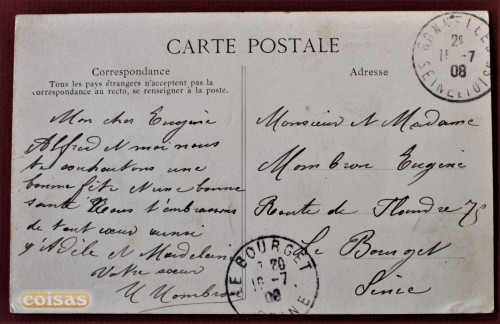 CARTE POSTALE
Correspondance
Tous les pays étrangers n'acceptent pas la
correspondance au recto, se renseigner à la poste.
Mon cher Eugène
Alfred et moi nous
te souhaitons une
bonne fête et une bonne
santé Nous t'embrassons
de tout cœur ainsi
q'Adèle et Madelain
Votre sœur
Mombron
Adresse
Monsieur et Madame
Mombron Eugène
Route de Flandre 75
Le Bourget
Seine
BONNELLES
SEINE ET OISE
2E
-7
08
LE BOURGET
-7
08
SEINE
coisas